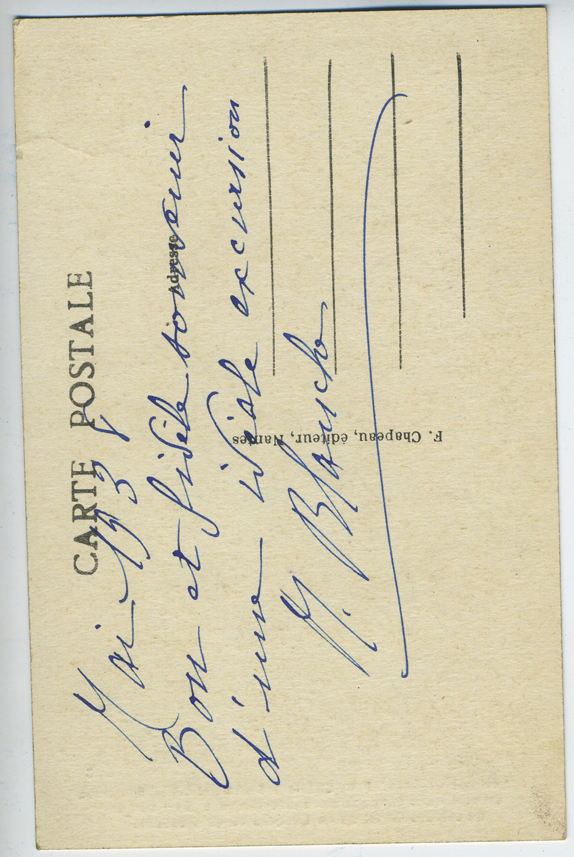 CARTE POSTALE
Adresse
Mai 1938
Bon et fidèle souvenir
d'une idéale excursion
M. Blanche
F. Chapeau, éditeur, Nantes